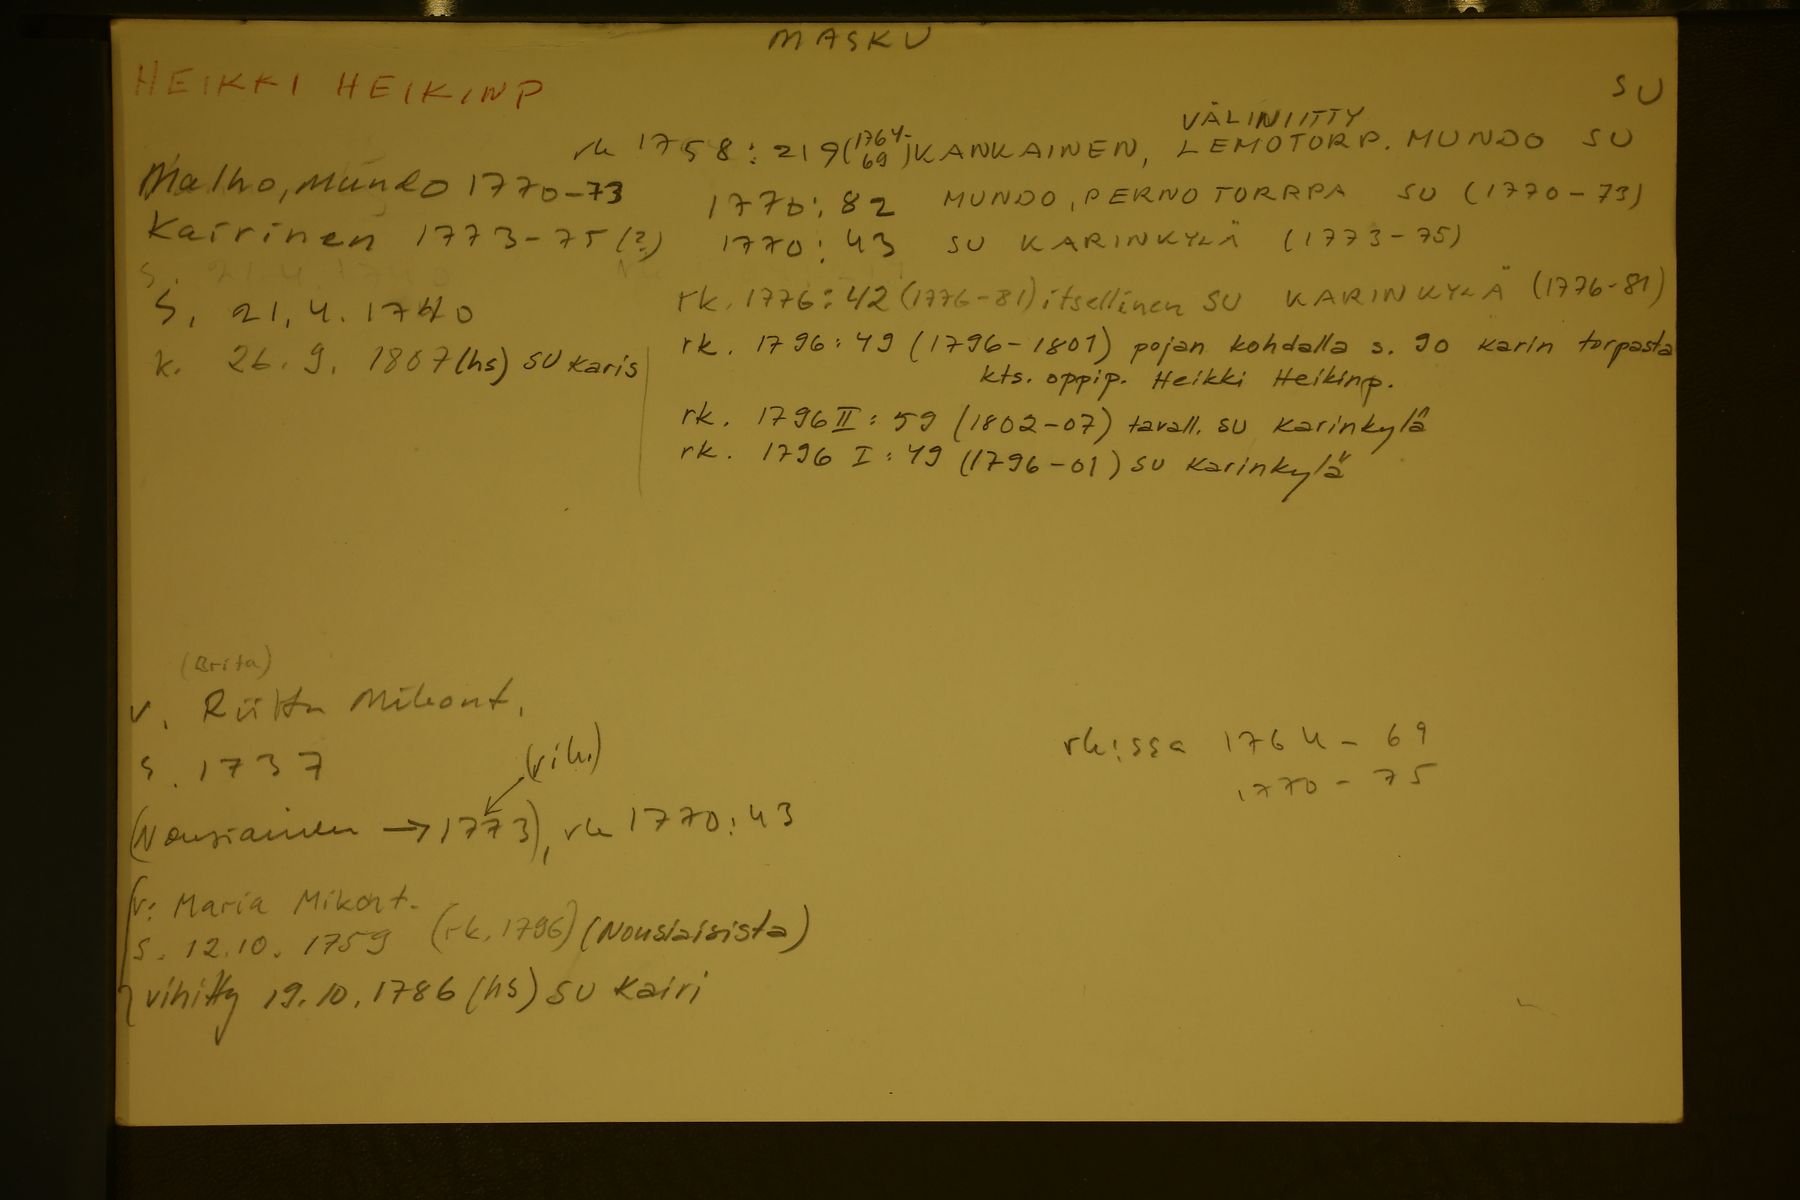 MASKU
HEIKKI HEIKINP
SU
VÄLINIITTY
rk 1758: 219 (1764-69) KANKAINEN, LEMOTORP. MUNDO SU
Malho, Mundo 1770-73
1770: 82 MUNDO, PERNO TORPPA SU (1770-73)
Kairinen 1773-75 (?)
1770: 43 SU KARINKYLÄ (1773-75)
S. 21.4.1740
rk. 1776: 42 (1776-81) itsellinen SU KARINKYLÄ (1776-81)
k. 26.9. 1807 (hs) SU Karis
rk. 1796: 49 (1796-1801) pojan kohdalla s. 90 Karin torpasta
kts. oppip. Heikki Heikinp.
rk. 1796 II: 59 (1802-07) tavall. SU Karinkylä
rk. 1796 I: 49 (1796-01) SU Karinkylä
(Brita)
v. Riitta Mikont.
s. 1737
(vih.)
(Nousiainen → 1773), rk 1770: 43
rk:ssa 1764-69
1770-75
v: Maria Mikont.
s. 12.10. 1759 (rk. 1796) (Nousiaisista)
vihitty 19.10.1786 (hs) SU Kairi